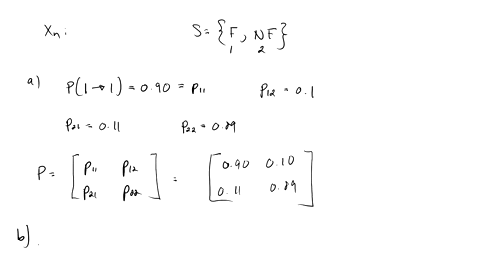 Xn: S = {F, NF}
1 2
a) P(1→1) = 0.90 = P11 P12 = 0.1
P21 = 0.11 P22 = 0.89
P = [P11 P12 P21 P22] = [0.90 0.10 0.11 0.89]
b)